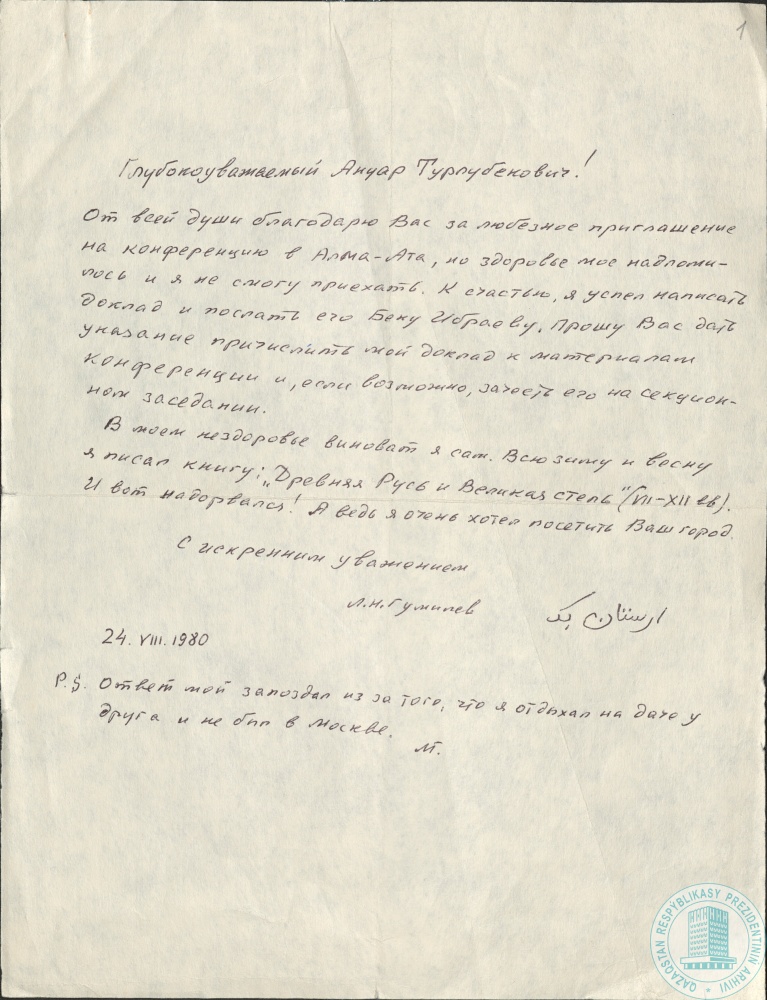 1
Глубокоуважаемый Ануар Турлубекович!
От всей души благодарю Вас за любезное приглашение
на конференцию в Алма-Ата, но здоровье мое надломи-
лось и я не смогу приехать. К счастью, я успел написать
доклад и послать его Беку Ибраеву. Прошу Вас дать
указание причислить мой доклад к материалам
конференции и, если возможно, зачесть его на секцион-
ном заседании.
В моем нездоровье виноват я сам. Всю зиму и весну
я писал книгу: „Древняя Русь и Великая степь" (VII-XII вв).
И вот надорвался! А ведь я очень хотел посетить Ваш город.
С искренним уважением
Л.Н.Гумилев ارستان بک
24.VIII.1980
P.S. Ответ мой запоздал из за того, что я отдыхал на даче у
друга и не был в Москве.
QAZAQSTAN RESPÝBLIKASY PREZIDENTINIŃ ARHIVI